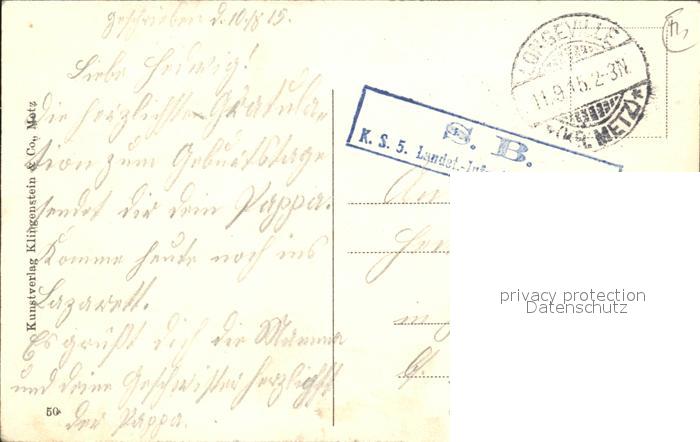 geschrieben d. 10./9 15.
Liebe Hedwig!
die herzlichste Gratula-
tion zum Geburtstage
sendet dir dein Pappa.
Komme heute noch ins
Lazarett.
Es grüßt dich die Mamma
und deine Geschwister herzlichst
der Pappa.
Kunstverlag Klingenstein & Co., Metz
50
LONGEVILLE
11.9.15.2-3N.
(KR. METZ)
S. B.
K. S. 5. Landst.-Inf
An
in
privacy protection
Datenschutz